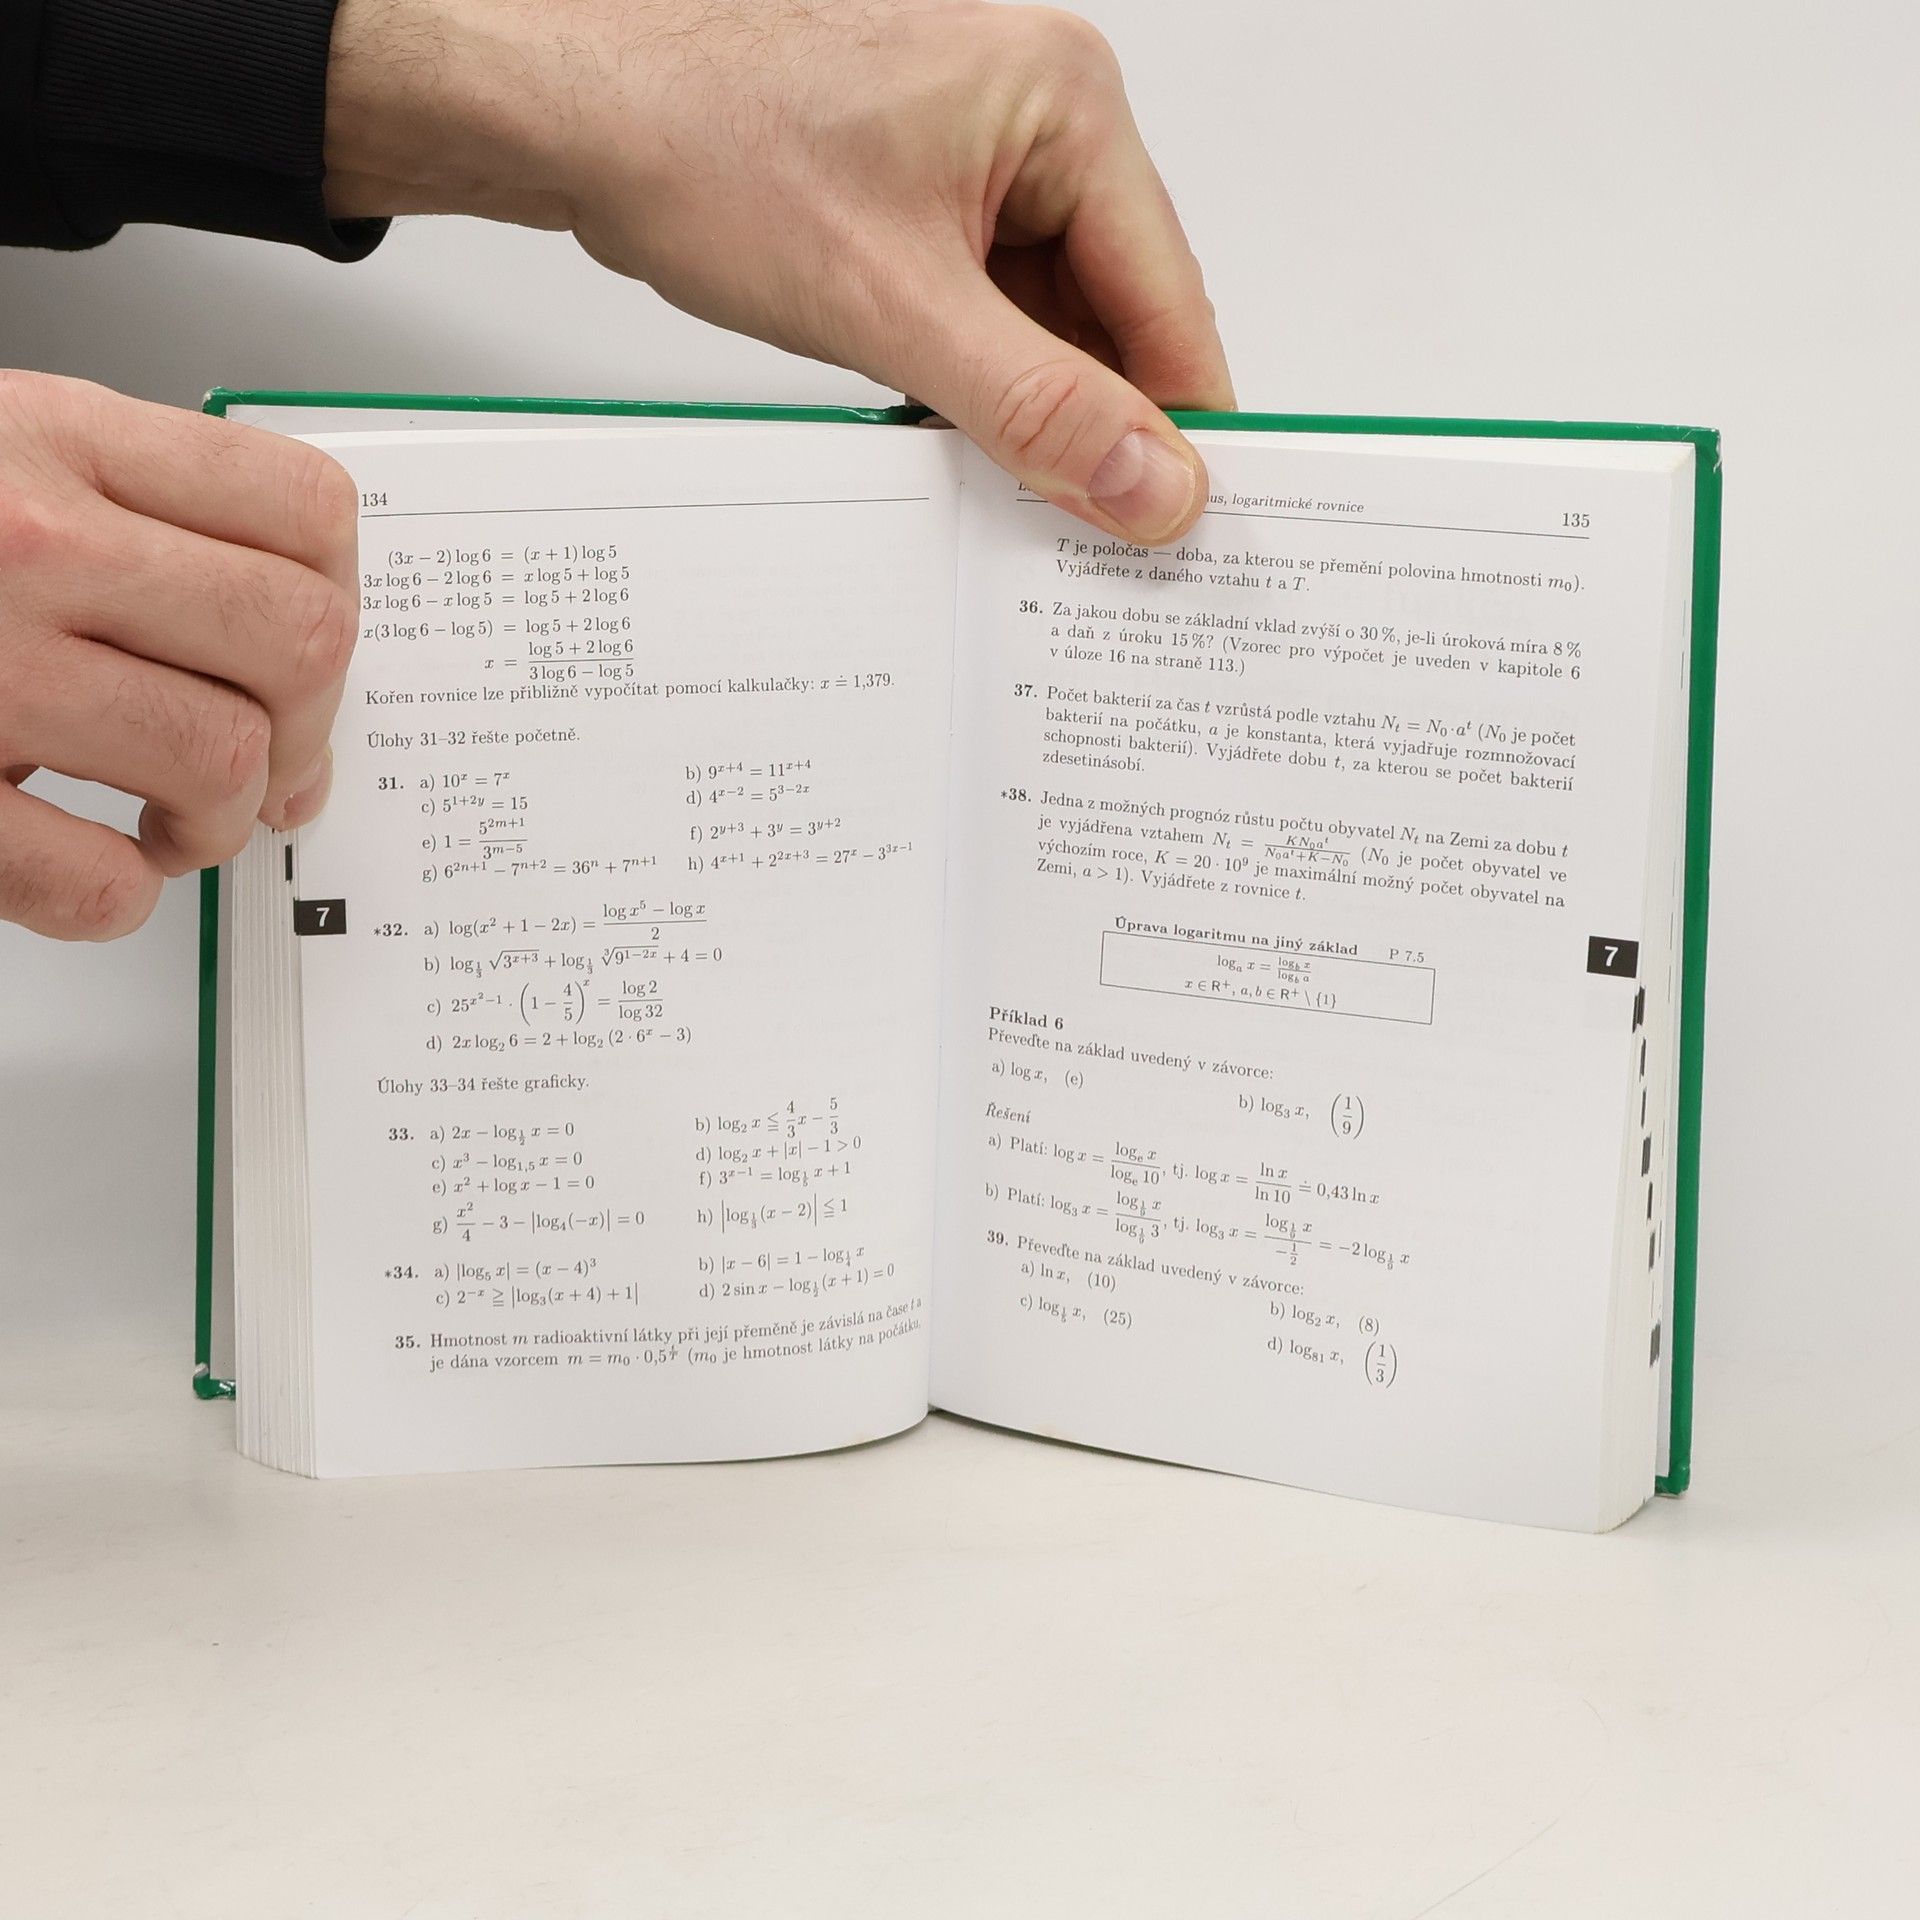 134
(3x − 2) log 6 = (x + 1) log 5
3x log 6 − 2 log 6 = x log 5 + log 5
3x log 6 − x log 5 = log 5 + 2 log 6
x(3 log 6 − log 5) = log 5 + 2 log 6
x = (log 5 + 2 log 6)/(3 log 6 − log 5)
Kořen rovnice lze přibližně vypočítat pomocí kalkulačky: x ≐ 1,379.
Úlohy 31–32 řešte početně.
31. a) 10^x = 7^x b) 9^{x+4} = 11^{x+4}
c) 5^{1+2y} = 15 d) 4^{x−2} = 5^{3−2x}
e) 1 = 5^{2m+1}/3^{m−5} f) 2^{y+3} + 3^y = 3^{y+2}
g) 6^{2n+1} − 7^{n+2} = 36^n + 7^{n+1} h) 4^{x+1} + 2^{2x+3} = 27^x − 3^{3x−1}
7
*32. a) log(x² + 1 − 2x) = (log x⁵ − log x)/2
b) log_{1/3} √(3^{x+3}) + log_{1/3} ∛(9^{1−2x}) + 4 = 0
c) 25^{x²−1} · (1 − 4/5)^x = log 2/log 32
d) 2x log₂ 6 = 2 + log₂ (2 · 6^x − 3)
Úlohy 33–34 řešte graficky.
33. a) 2x − log_{1/2} x = 0 b) log₂ x ≦ 4/3 x − 5/3
c) x³ − log_{1,5} x = 0 d) log₂ x + |x| − 1 > 0
e) x² + log x − 1 = 0 f) 3^{x−1} = log_{1/5} x + 1
g) x²/4 − 3 − |log₄(−x)| = 0 h) |log_{1/3}(x − 2)| ≦ 1
*34. a) |log₅ x| = (x − 4)³ b) |x − 6| = 1 − log_{1/4} x
c) 2^{−x} ≧ |log₃(x + 4) + 1| d) 2 sin x − log_{1/2}(x + 1) = 0
35. Hmotnost m radioaktivní látky při její přeměně je závislá na čase t a
je dána vzorcem m = m₀ · 0,5^{t/T} (m₀ je hmotnost látky na počátku,
logaritmické rovnice 135
T je poločas — doba, za kterou se přemění polovina hmotnosti m₀).
Vyjádřete z daného vztahu t a T.
36. Za jakou dobu se základní vklad zvýší o 30 %, je-li úroková míra 8 %
a daň z úroku 15 %? (Vzorec pro výpočet je uveden v kapitole 6
v úloze 16 na straně 113.)
37. Počet bakterií za čas t vzrůstá podle vztahu N_t = N₀·a^t (N₀ je počet
bakterií na počátku, a je konstanta, která vyjadřuje rozmnožovací
schopnosti bakterií). Vyjádřete dobu t, za kterou se počet bakterií
zdesetinásobí.
*38. Jedna z možných prognóz růstu počtu obyvatel N_t na Zemi za dobu t
je vyjádřena vztahem N_t = KN₀a^t/(N₀a^t+K−N₀) (N₀ je počet obyvatel ve
výchozím roce, K = 20 · 10⁹ je maximální možný počet obyvatel na
Zemi, a > 1). Vyjádřete z rovnice t.
Úprava logaritmu na jiný základ P 7.5
log_a x = log_b x/log_b a
x ∈ R⁺, a, b ∈ R⁺ \ {1}
7
Příklad 6
Převeďte na základ uvedený v závorce:
a) log x, (e) b) log₃ x, (1/9)
Řešení
a) Platí: log x = log_e x/log_e 10, tj. log x = ln x/ln 10 ≐ 0,43 ln x
b) Platí: log₃ x = log_{1/9} x/log_{1/9} 3, tj. log₃ x = log_{1/9} x/(−1/2) = −2 log_{1/9} x
39. Převeďte na základ uvedený v závorce:
a) ln x, (10) b) log₂ x, (8)
c) log_{1/5} x, (25) d) log₈₁ x, (1/3)